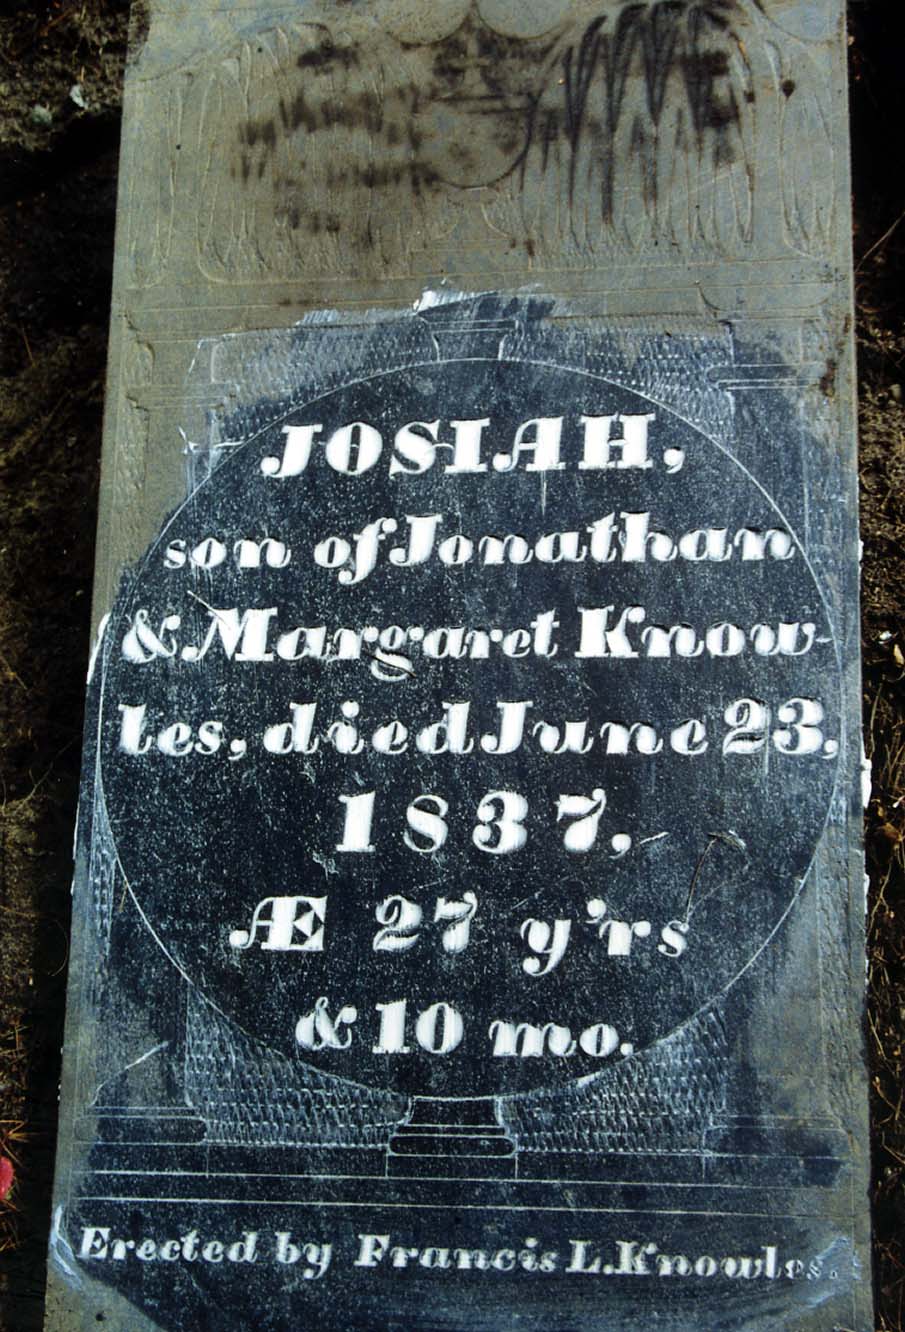 JOSIAH,
son of Jonathan
& Margaret Know-
les, died June 23,
1837,
Æ 27 y'rs
& 10 mo.
Erected by Francis L. Knowles.